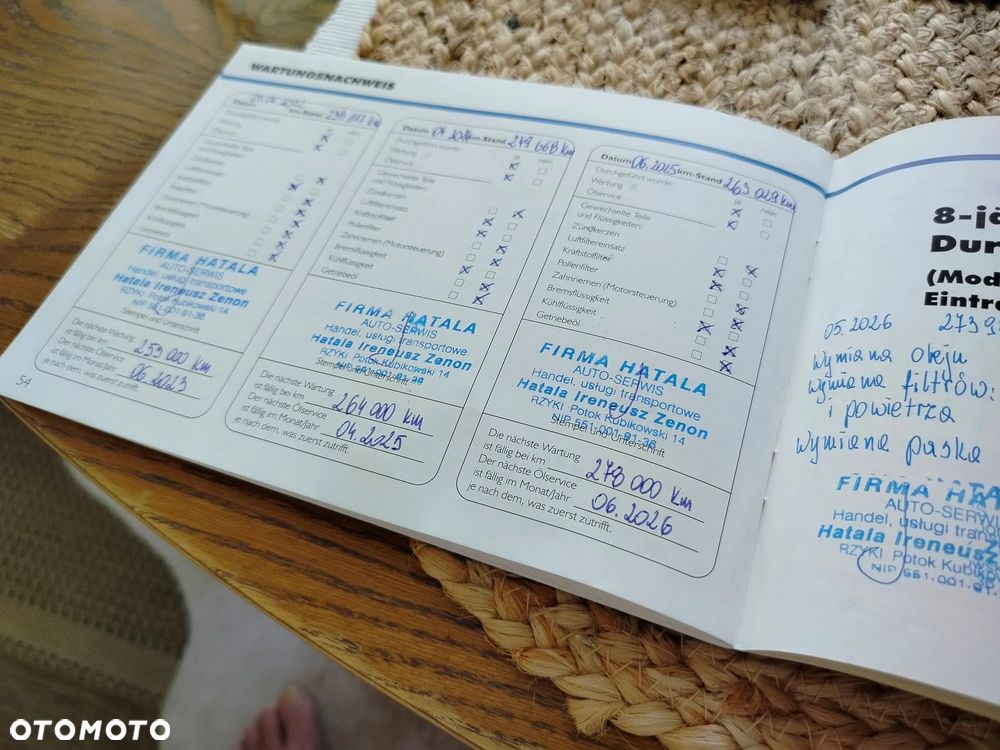 WARTUNGSNACHWEIS
Datum km-Stand
Durchgeführt wurde: ja nein
Wartung
Ölservice
Gewechselte Teile
und Flüssigkeiten:
Zündkerzen
Luftfiltereinsatz
Kraftstofffilter
Pollenfilter
Zahnriemen (Motorsteuerung)
Bremsflüssigkeit
Kühlflüssigkeit
Getriebeöl
FIRMA HATALA
AUTO-SERWIS
Handel, usługi transportowe
Hatala Ireneusz Zenon
RZYKI Potok Kubikowski 14
NIP 551-001-91-36
Stempel und Unterschrift
Die nächste Wartung
ist fällig bei km 253 000 km
Der nächste Ölservice
ist fällig im Monat/Jahr 06.2023
je nach dem, was zuerst zutrifft.
54
Datum 04.2024 km-Stand 249 668 km
Durchgeführt wurde: ja nein
Wartung
Ölservice
Gewechselte Teile
und Flüssigkeiten:
Zündkerzen
Luftfiltereinsatz
Kraftstofffilter
Pollenfilter
Zahnriemen (Motorsteuerung)
Bremsflüssigkeit
Kühlflüssigkeit
Getriebeöl
FIRMA HATALA
AUTO-SERWIS
Handel, usługi transportowe
Hatala Ireneusz Zenon
RZYKI Potok Kubikowski 14
NIP 551-001-91-36
Stempel und Unterschrift
Die nächste Wartung
ist fällig bei km 264 000 km
Der nächste Ölservice
ist fällig im Monat/Jahr 04.2025
je nach dem, was zuerst zutrifft.
Datum 06.2025 km-Stand 263 029 km
Durchgeführt wurde: ja nein
Wartung
Ölservice
Gewechselte Teile
und Flüssigkeiten:
Zündkerzen
Luftfiltereinsatz
Kraftstofffilter
Pollenfilter
Zahnriemen (Motorsteuerung)
Bremsflüssigkeit
Kühlflüssigkeit
Getriebeöl
FIRMA HATALA
AUTO-SERWIS
Handel, usługi transportowe
Hatala Ireneusz Zenon
RZYKI Potok Kubikowski 14
NIP 551-001-91-36
Stempel und Unterschrift
Die nächste Wartung
ist fällig bei km 278 000 km
Der nächste Ölservice
ist fällig im Monat/Jahr 06.2026
je nach dem, was zuerst zutrifft.
8-j
Dur
(Mod
Eintr
05.2026 273 9
Wymiana oleju
wymiana filtrów:
i powietrza
wymiana paska
FIRMA HATA
AUTO-SERW
Handel, usługi transpor
Hatala Ireneusz
RZYKI Potok Kubik
NIP 551-001-91-
OTOMOTO